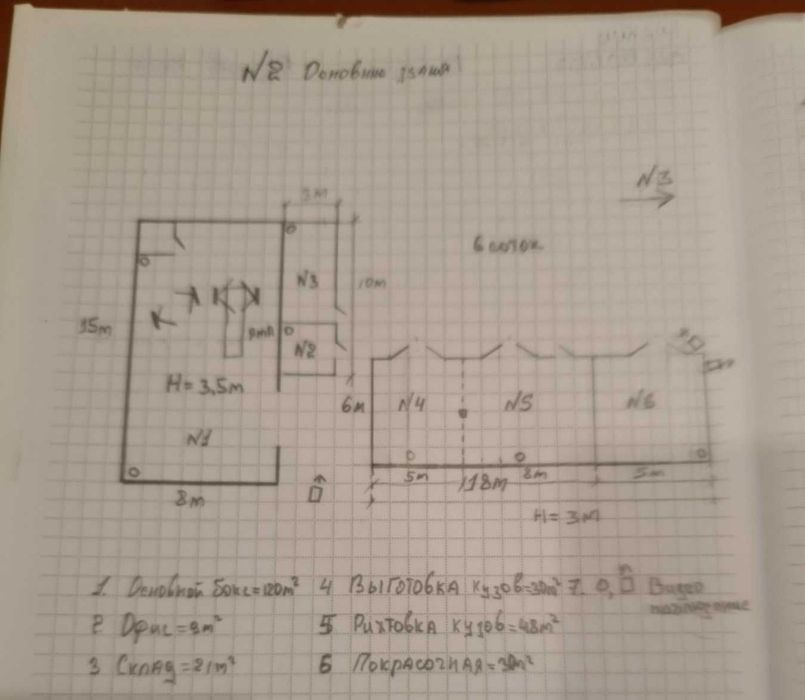 №2 Основние здания
№3
3м
6 соток
№3
10м
15м
яма
№2
H=3,5м
6м
№4
№5
№6
№1
5м
8м
5м
18м
8м
H=3м
1. Основной бокс=120м²
4 Выготовка кузов=30м²
7. О, Видео наблюдение
2 Офис=9м²
5 Рихтовка кузов=48м²
3 Склад=21м²
6 Покрасочная=30м²